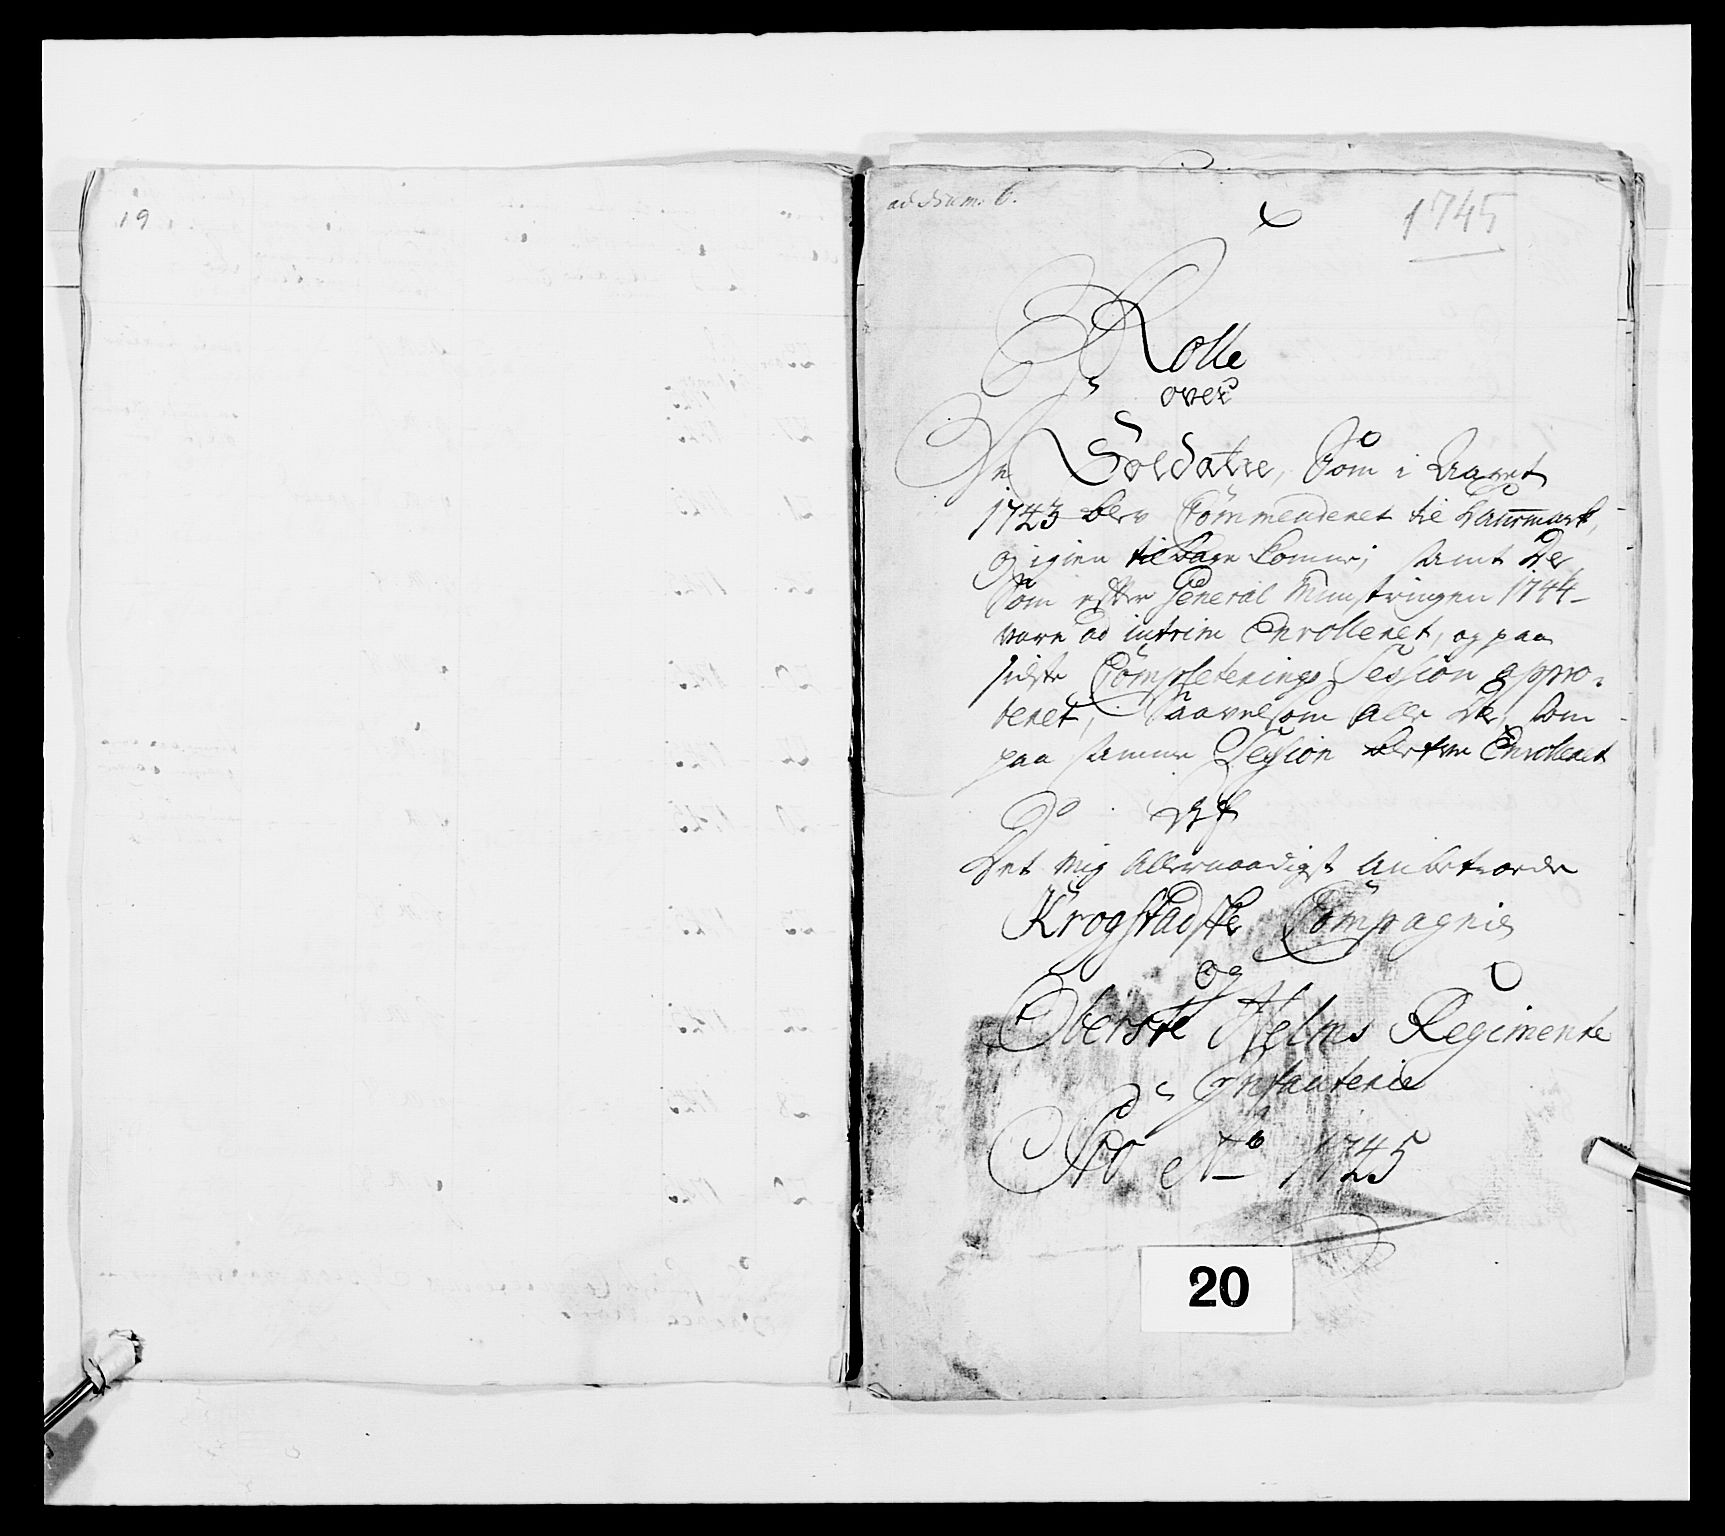 19
ad Num. 6.
1745
Rolle
over
De Soldater, Som i Aaret
1743 blev Commenderet til Danmark,
og igien tilbage komne; samt De
Som efter General Munstringen 1744
vare ad intrim Enrolleret, og paa
sidste Completerings Session appro-
beret, Saavelsom alle De, Som
paa samme Session bleven Enrolleret
Ved
Det mig Allernaadigst Anbetroede
Krogstadske Compagnie
og
Oberste Helms Regimente
Infanterie
Pro Ao 1745
20